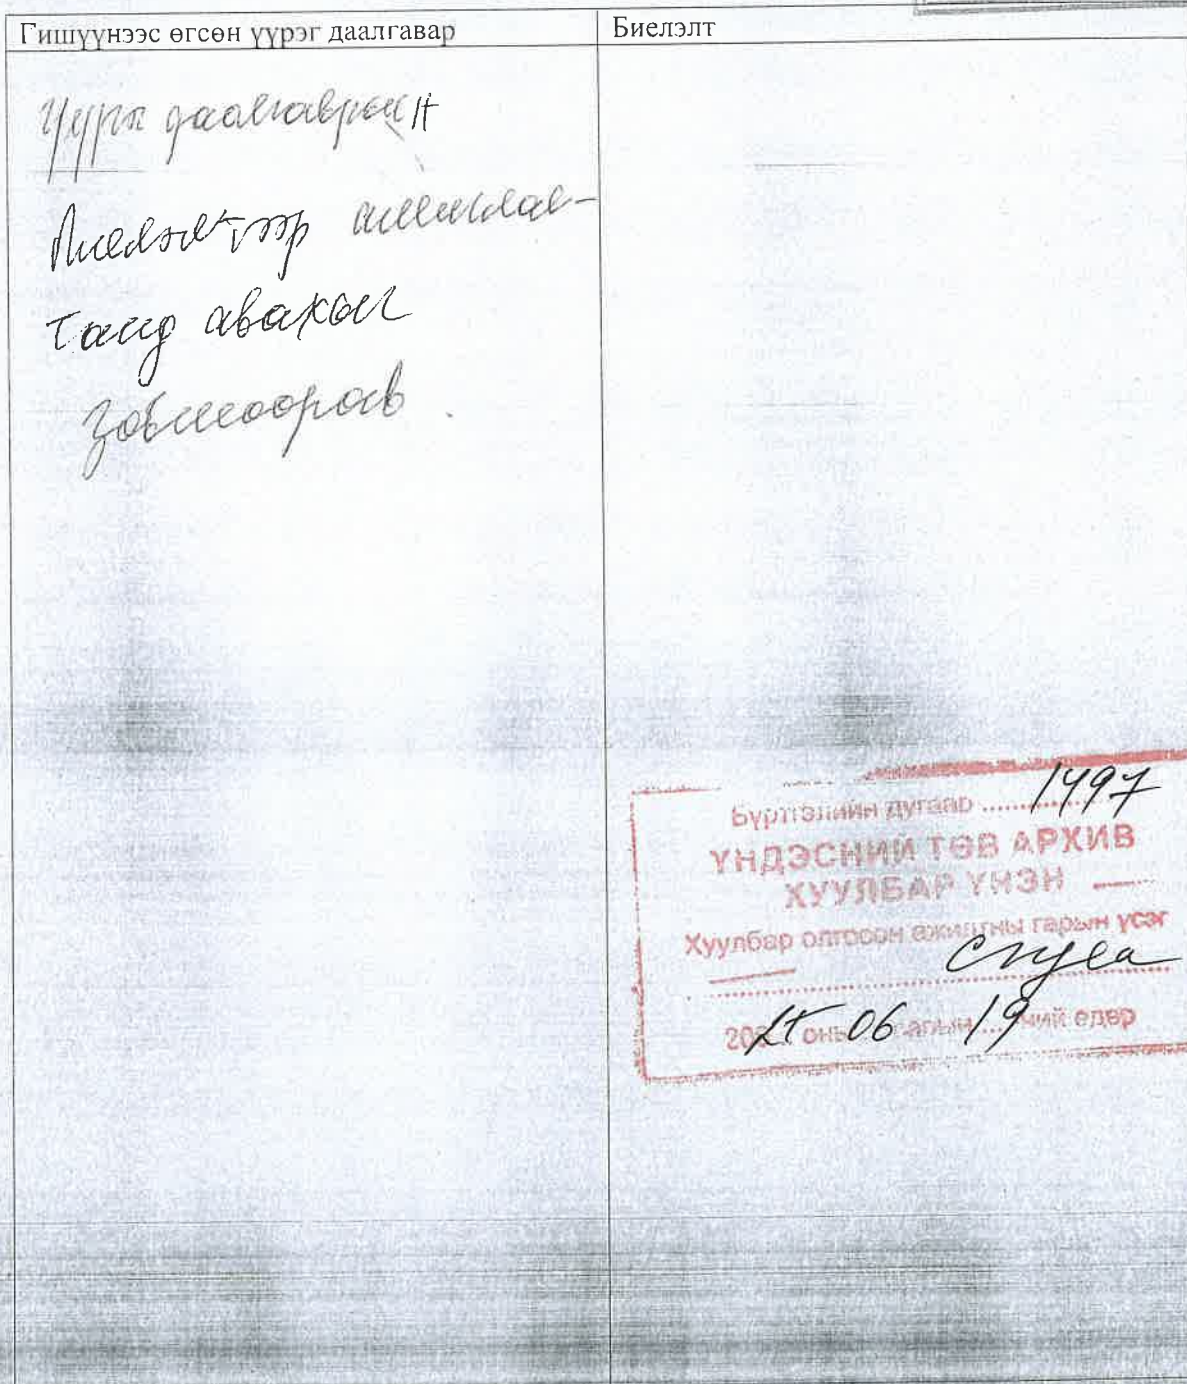 Гишүүнээс өгсөн үүрэг даалгавар
Биелэлт
Үүрэг даалгаврын
биелэлтээр ашиглал-
танд авахыг
зөвшөөрөв.
Бүртгэлийн дугаар ............ 1497
ҮНДЭСНИЙ ТӨВ АРХИВ
ХУУЛБАР ҮНЭН
Хуулбар олгосон ажилтны гарын үсэг
оны 06 сарын 19 ний өдөр